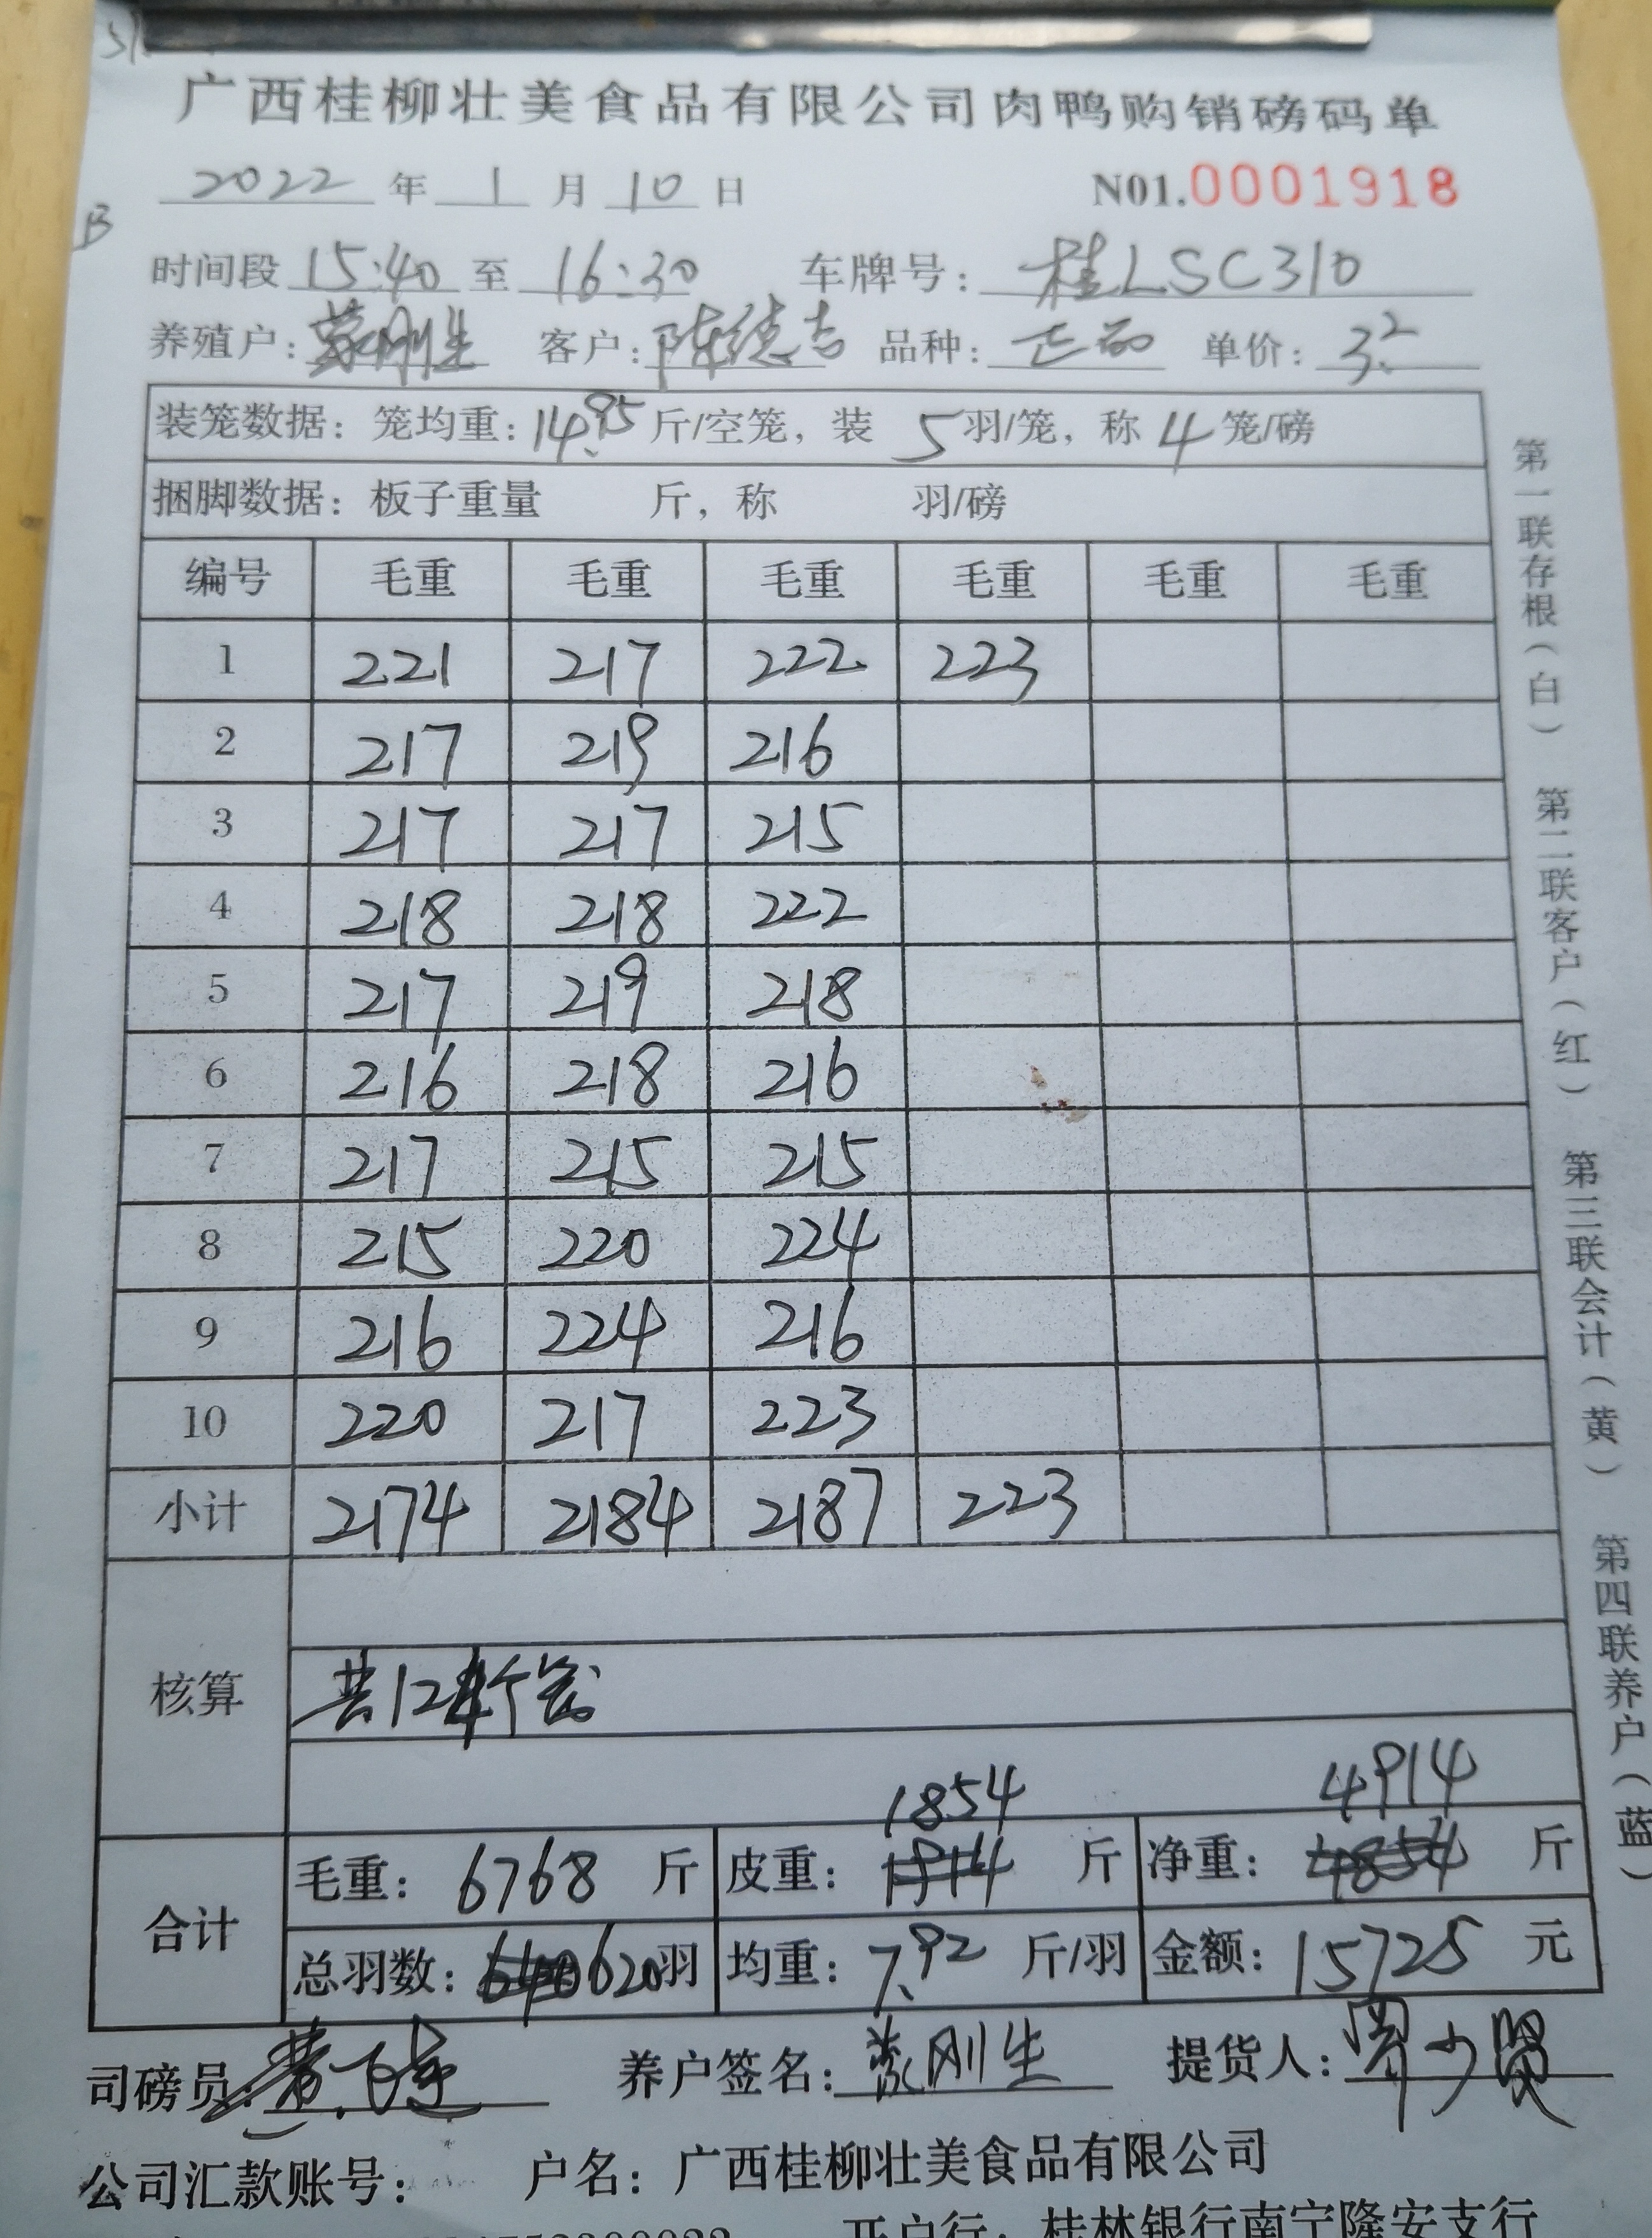 广西桂柳壮美食品有限公司肉鸭购销磅码单
2022 年 1 月 10 日 N01.0001918
B
时间段 15:40 至 16:30 车牌号: 桂LSC310
养殖户: 蒙刚生 客户: 陈德吉 品种: 正品 单价: 3.2
装笼数据: 笼均重: 14.95 斤/空笼, 装 5 羽/笼, 称 4 笼/磅
捆脚数据: 板子重量 斤, 称 羽/磅
编号 毛重 毛重 毛重 毛重 毛重 毛重
1 221 217 222 223
2 217 219 216
3 217 217 215
4 218 218 222
5 217 219 218
6 216 218 216
7 217 215 215
8 215 220 224
9 216 224 216
10 220 217 223
小计 2174 2184 2187 223
核算
共124个笼
1854 4914
合计
毛重: 6768 斤 皮重: 1914 斤 净重: 4854 斤
总羽数: 620羽 均重: 7.92 斤/羽 金额: 15725 元
司磅员: 养户签名: 蒙刚生 提货人:
公司汇款账号: 户名: 广西桂柳壮美食品有限公司
开户行: 桂林银行南宁隆安支行
第一联存根(白) 第二联客户(红) 第三联会计(黄) 第四联养户(蓝)